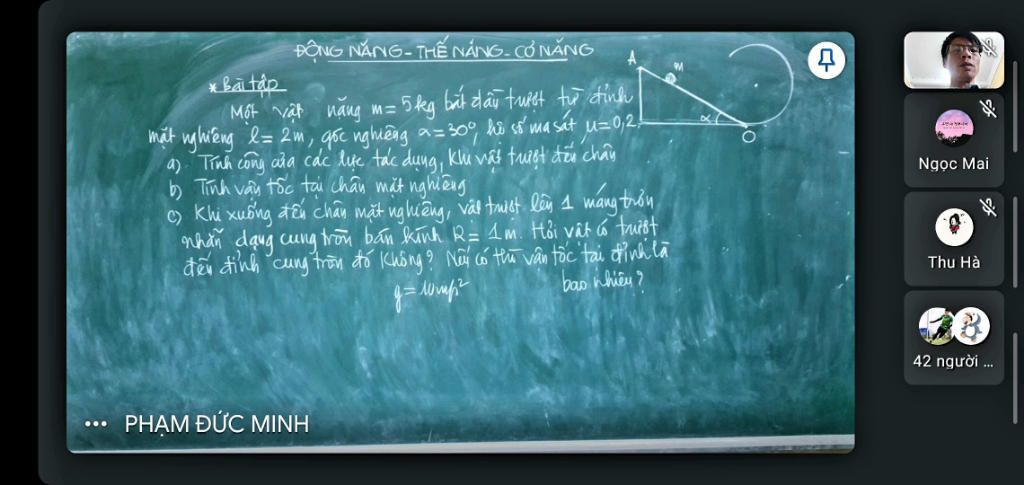 ĐỘNG NĂNG - THẾ NĂNG - CƠ NĂNG
* Bài tập
A
m
α
O
Một vật nặng m = 5kg bắt đầu trượt từ đỉnh
mặt nghiêng l = 2m, góc nghiêng α = 30°, hệ số ma sát μ = 0,2.
a). Tính công của các lực tác dụng, khi vật trượt đến chân
b) Tính vận tốc tại chân mặt nghiêng
c) Khi xuống đến chân mặt nghiêng, vật trượt lên 1 máng tròn
nhẵn dạng cung tròn bán kính R = 1m. Hỏi vật có trượt
đến đỉnh cung tròn đó không? Nếu có thì vận tốc tại đỉnh là
bao nhiêu?
g = 10m/s²
PHẠM ĐỨC MINH
Ngọc Mai
Thu Hà
42 người ...